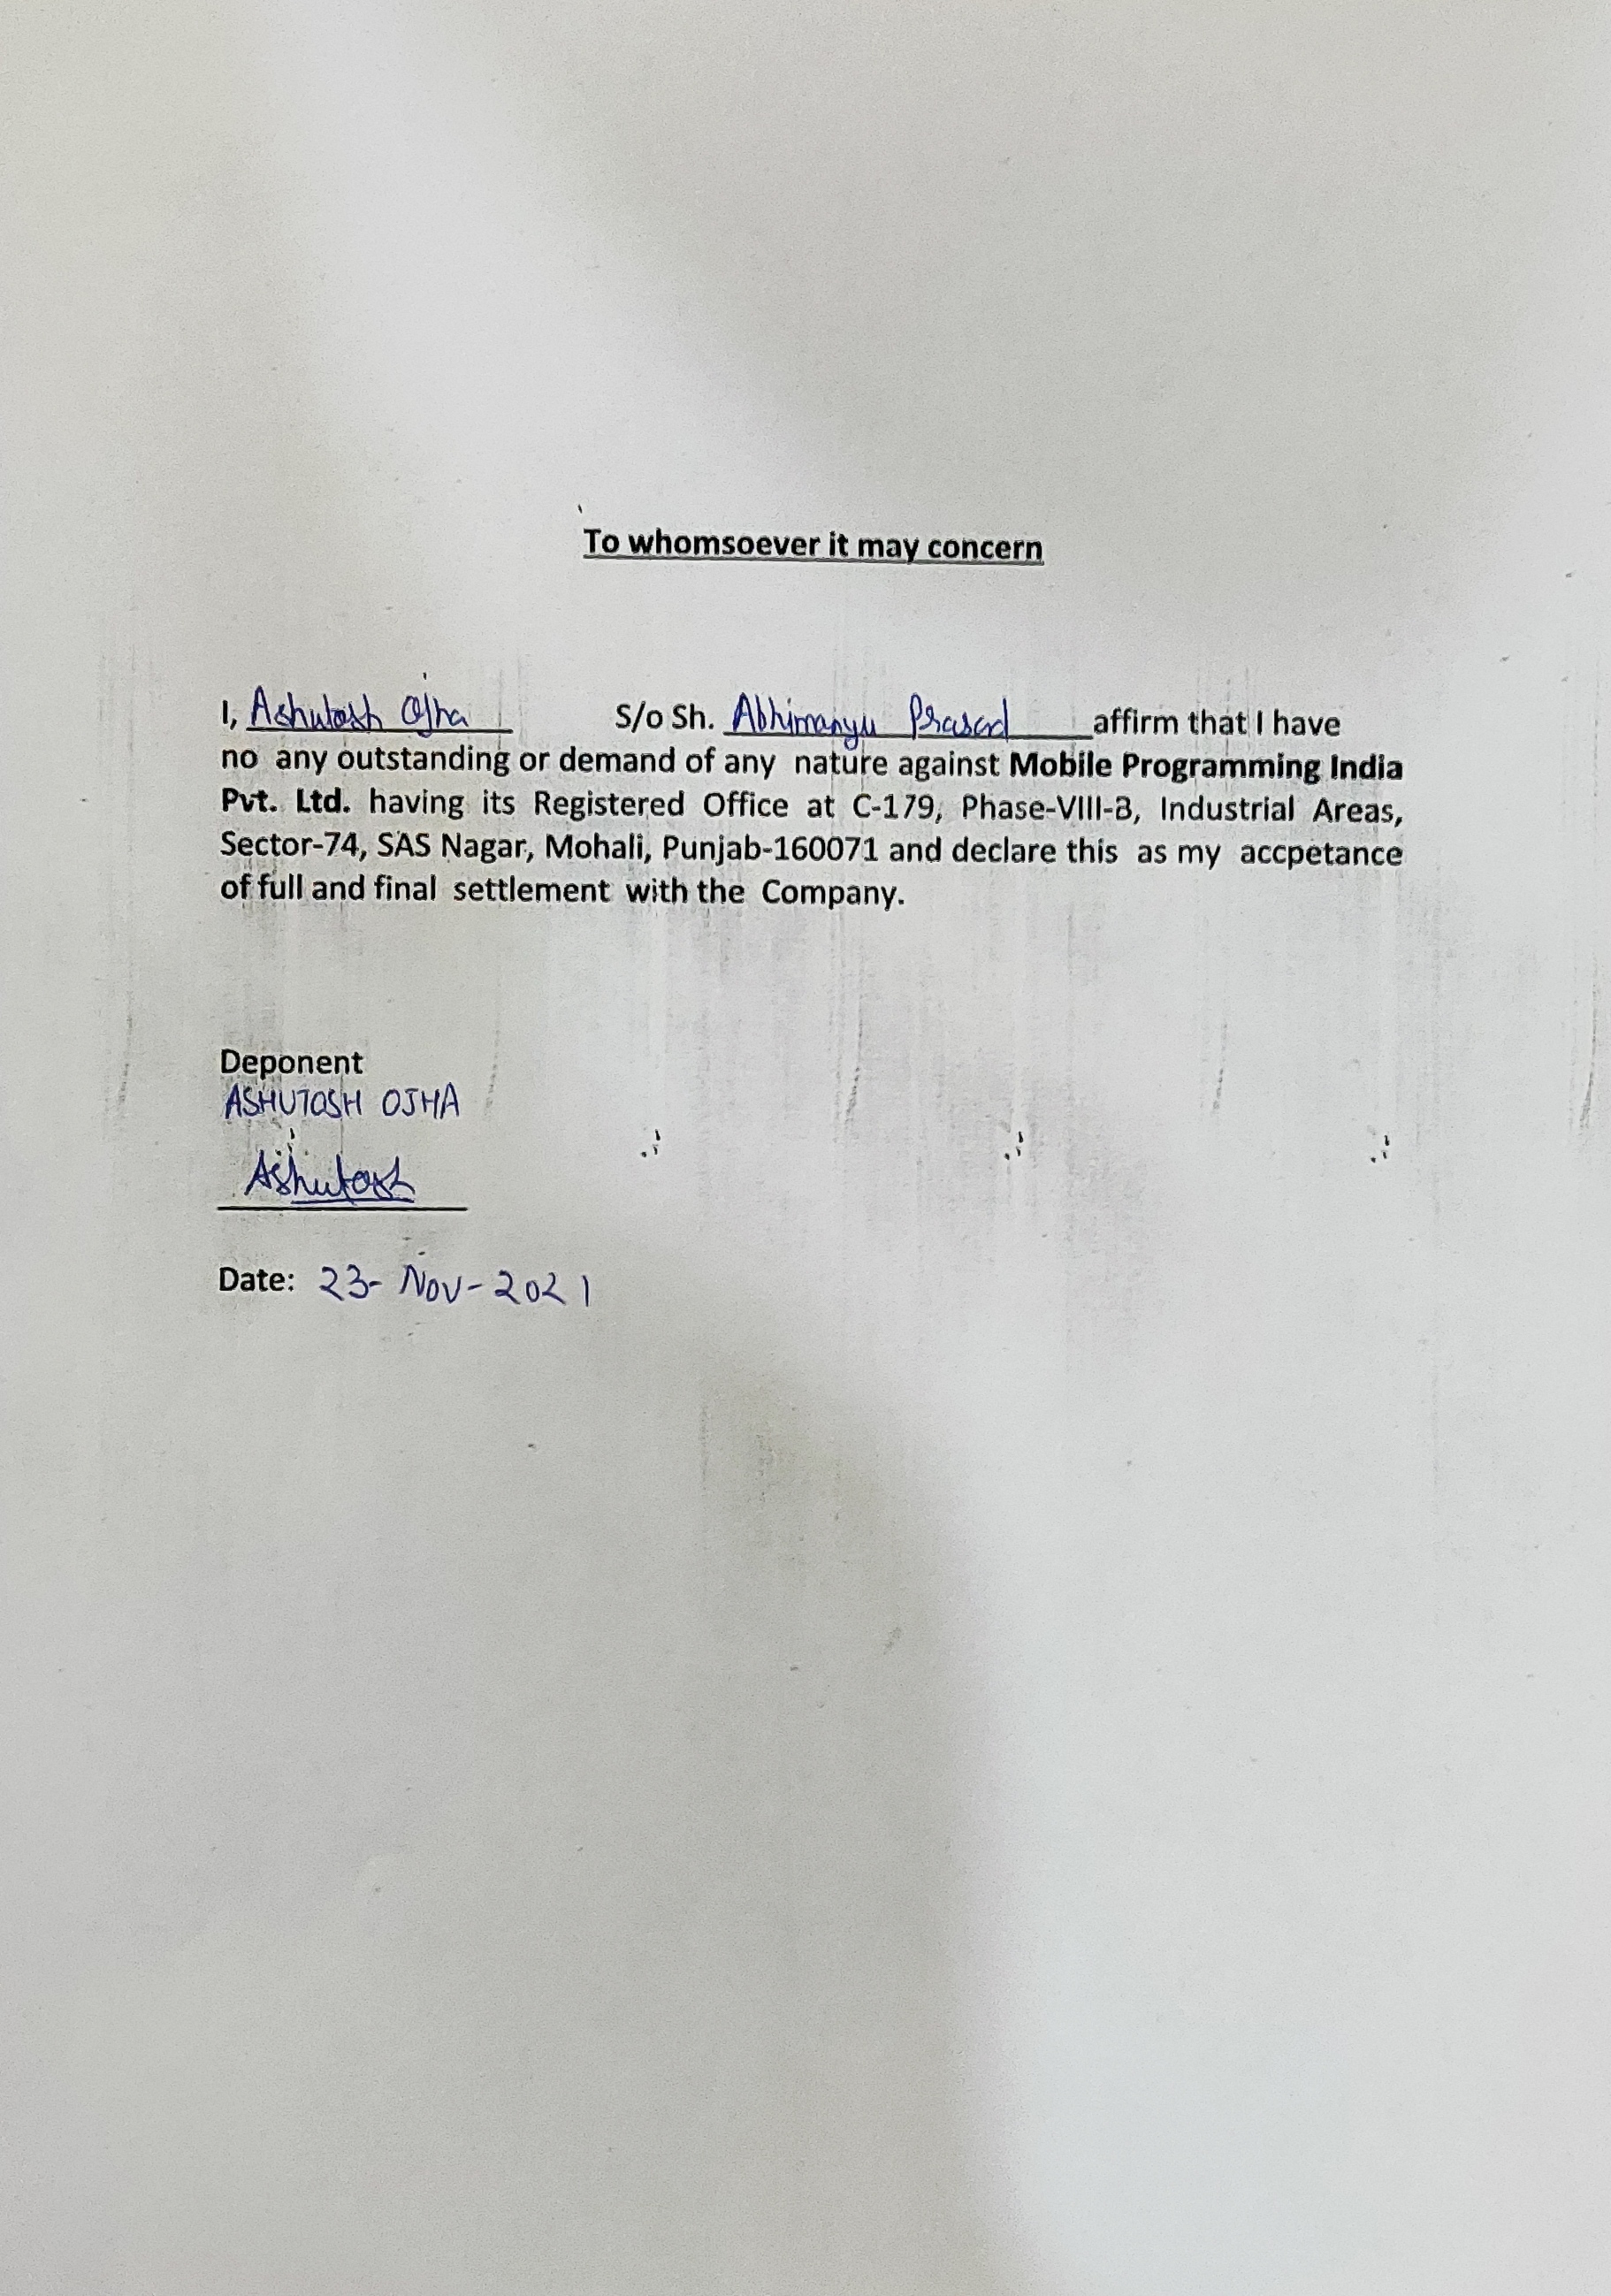 To whomsoever it may concern
I, Ashutosh Ojha S/o Sh. Abhimanyu Prasad affirm that I have
no any outstanding or demand of any nature against Mobile Programming India
Pvt. Ltd. having its Registered Office at C-179, Phase-VIII-B, Industrial Areas,
Sector-74, SAS Nagar, Mohali, Punjab-160071 and declare this as my accpetance
of full and final settlement with the Company.
Deponent
ASHUTOSH OJHA
Ashutosh
Date: 23-Nov-2021